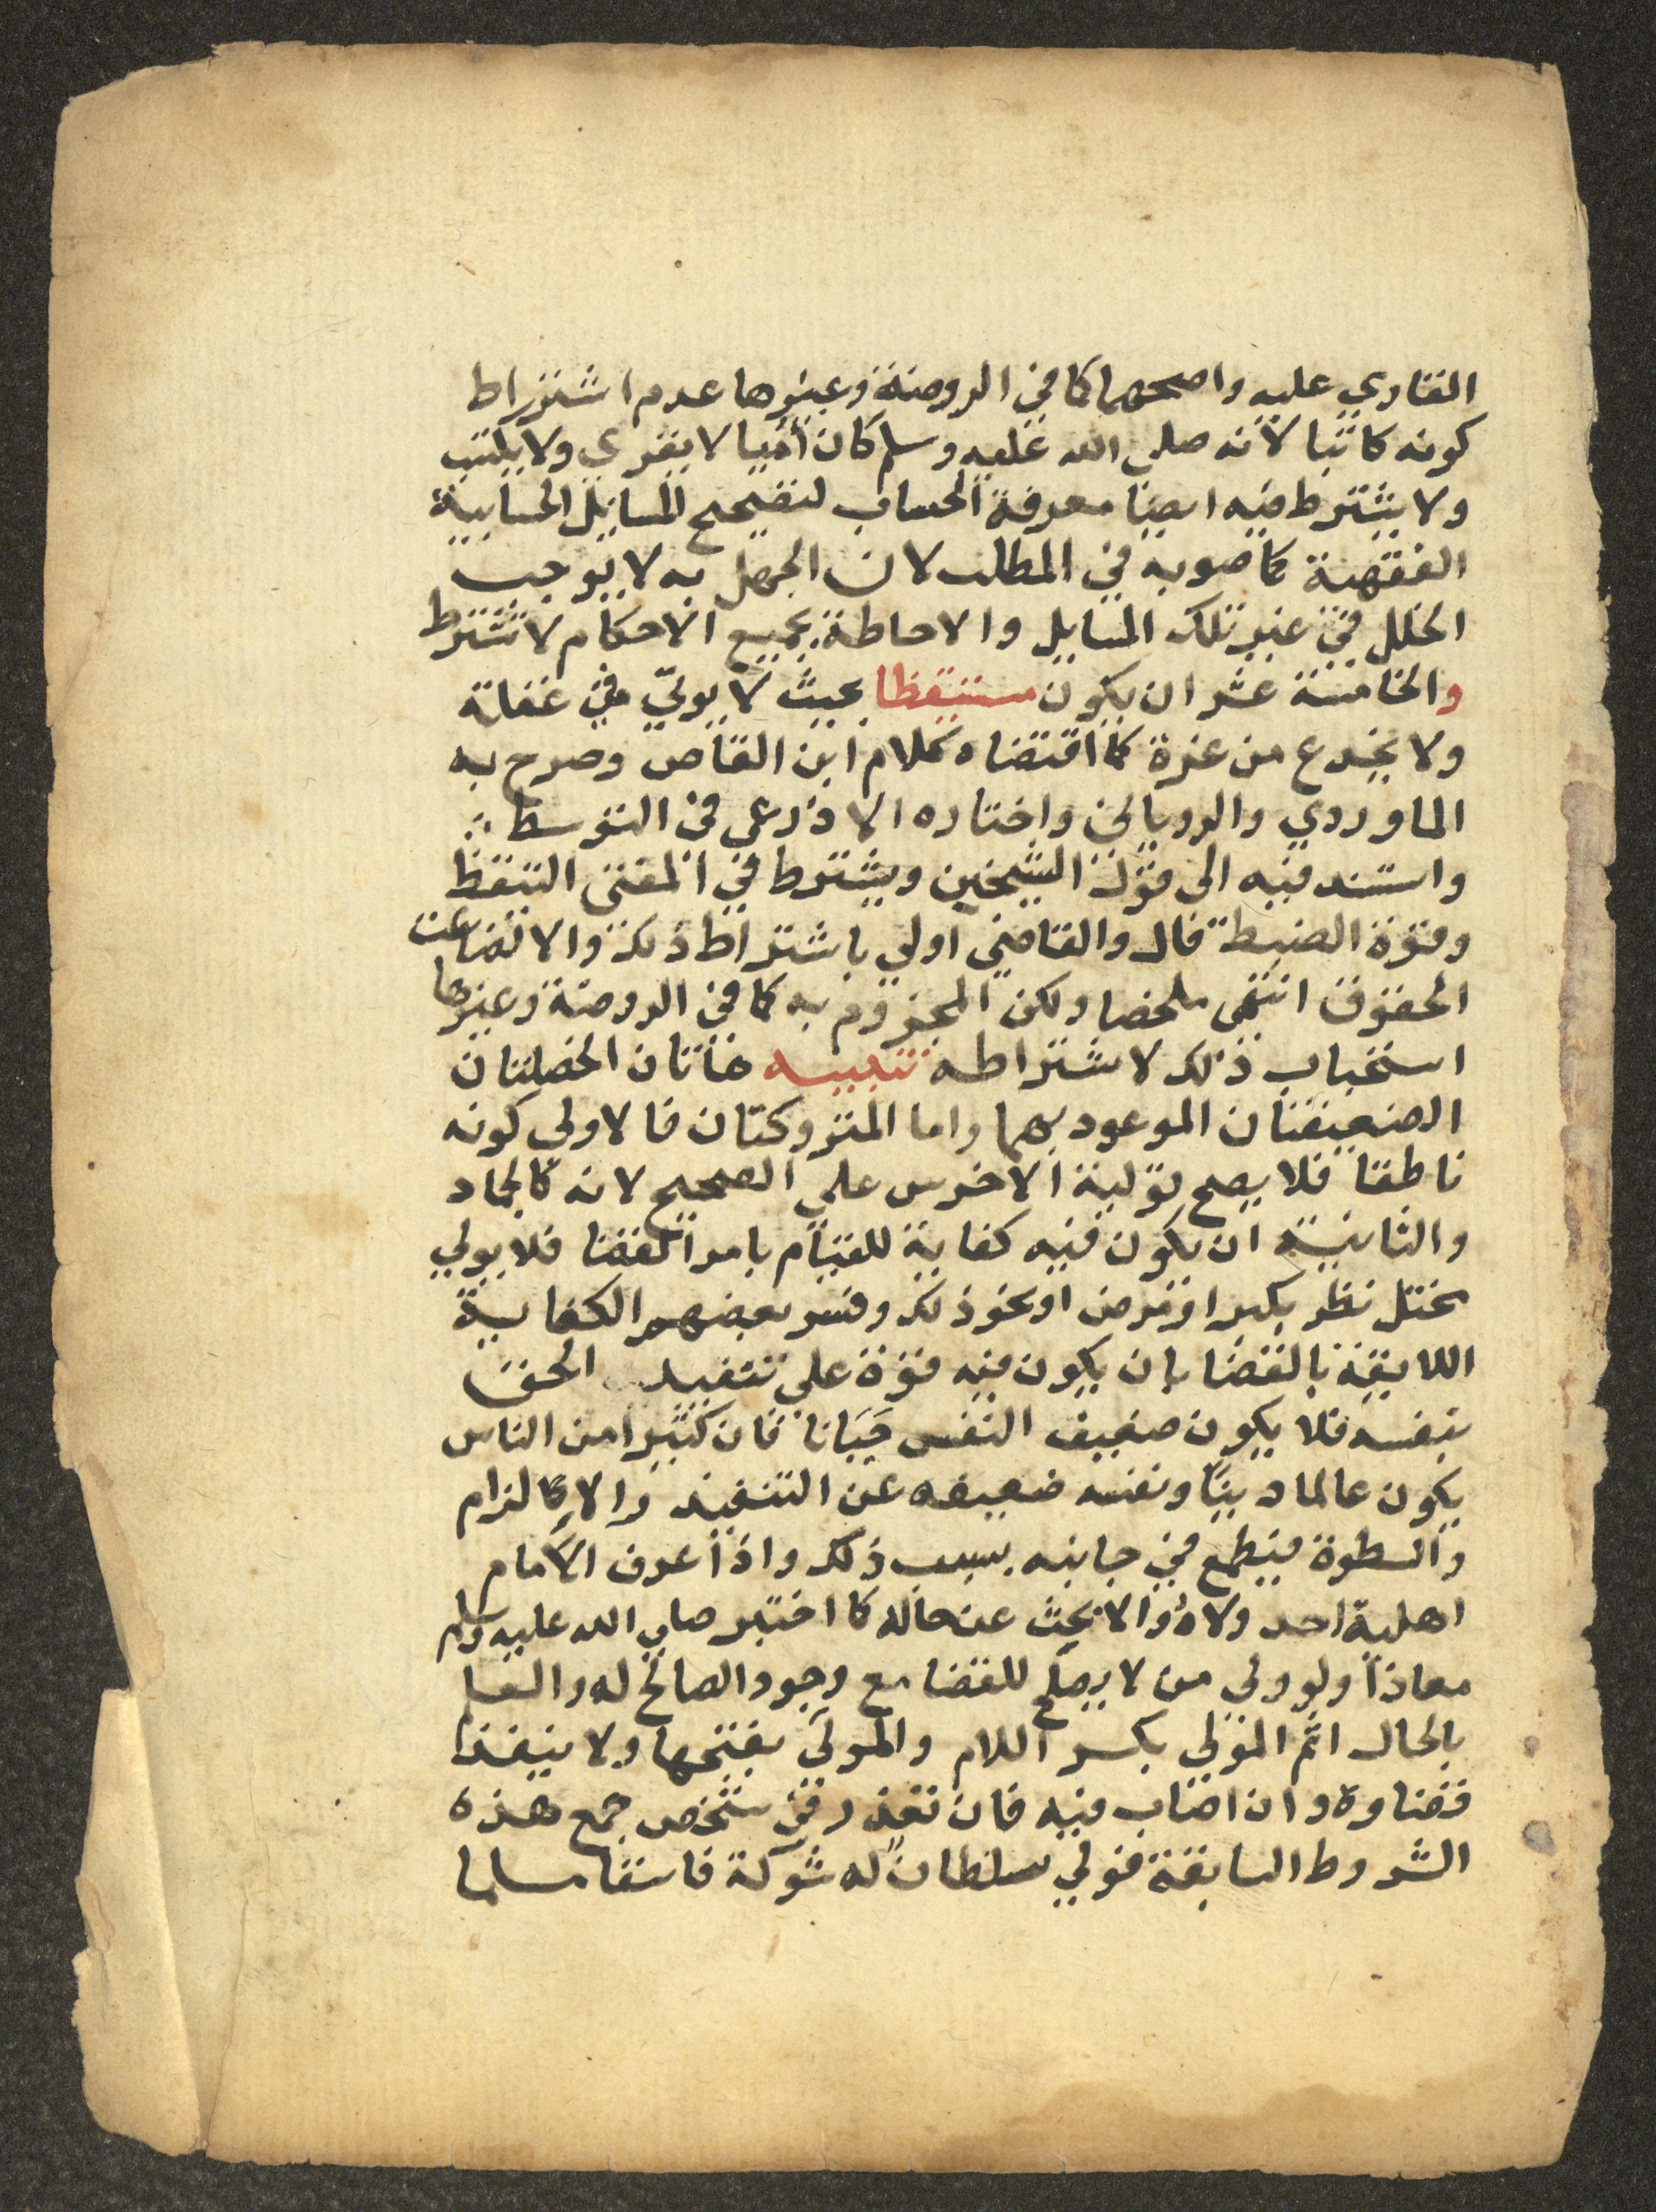 القاري عليه واصحهما كما في الروضة وغيرها عدم اشتراط
كونه كاتبا لانه صلى الله عليه وسلم كان أميا لا يقرى ولا يكتب
ولا يشترط فيه ايضا معرفة الحساب لتصحيح المسايل الحسابية
الفقهية كما صوبه في المطلب لان الجهل به لا يوجب
الخلل في غير تلك المسايل والاحاطة بجميع الاحكام لا تشترط
والخامسة عشر ان يكون مستيقظا بحيث لا يوتي في غفلة
ولا يخدع من غرة كما اقتضاه كلام ابن القاص وصرح به
الماوردي والروياني واختاره الاذرعي في التوسط
واستند فيه الى قول الشيخين ويشترط في المفتي التيقظ
وقوة الضبط قال والقاضي اولي باشتراط ذلك والا لضاعت
الحقوق انتهى ملخصا ولكن المجزوم به كما في الروضة وغيرها
استحباب ذلك لا اشتراطه تنبيه هاتان الخصلتان
الضعيفتان الموعود بهما واما المتروكتان فالاولى كونه
ناطقا فلا يصح تولية الاخرس علي الصحيح لانه كالجماد
والثانية ان يكون فيه كفاية للقيام بامر القضا فلا يولي
مختل نظر بكبر او مرض او نحو ذلك وفسر بعضهم الكفاية
اللايقة بالقضا بان يكون فيه قوة علي تنفيذ الحق
بنفسه فلا يكون ضعيف النفس جَبَانا فان كثيرا من الناس
يكون عالما دينًا ونفسه ضعيفه عن التنفيذ والالزام
والسطوة فيطمع في جانبه بسبب ذلك واذا عرف الامام
اهلية احد ولاهُ والا بحث عن حاله كما اختبر صلي الله عليه وسلم
معاذا ولو ولى من لا يصلح للقضا مع وجود الصالح له والعلم
بالحال اثم المولِي بكسر اللام والمولَى بفتحها ولا ينفذ
قضاوه وان اصاب فيه فان تعذر في شخص جمع هذه
الشروط السابقة فولي سلطان له شوكة فاسقا مسلما